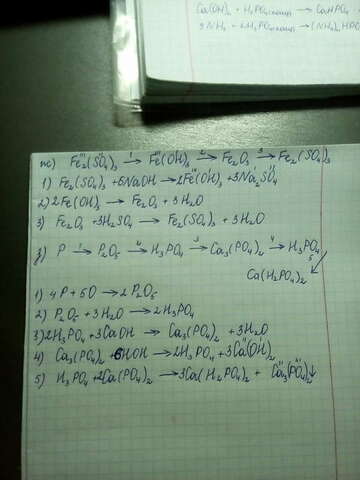 Ca(OH)₂ + H₃PO₄ → CaHPO₄
2NH₃ + H₃PO₄ → (NH₄)₂HPO₄
ж) Fe₂(SO₄)₃ →¹ Fe(OH)₃ →² Fe₂O₃ →³ Fe₂(SO₄)₃
1) Fe₂(SO₄)₃ + 6NaOH → 2Fe(OH)₃ + 3Na₂SO₄
2) 2Fe(OH)₃ → Fe₂O₃ + 3H₂O
3) Fe₂O₃ + 3H₂SO₄ → Fe₂(SO₄)₃ + 3H₂O
з) P →¹ P₂O₅ →² H₃PO₄ →³ Ca₃(PO₄)₂ →⁴ H₃PO₄
5 Ca(H₂PO₄)₂
1) 4P + 5O → 2P₂O₅
2) P₂O₅ + 3H₂O → 2H₃PO₄
3) 2H₃PO₄ + 3CaOH → Ca₃(PO₄)₂ + 3H₂O
4) Ca₃(PO₄)₂ + 6HOH → 2H₃PO₄ + 3Ca(OH)₂
5) H₃PO₄ + 2Ca(PO₄)₂ → 3Ca(H₂PO₄)₂ + Ca₃(PO₄)₂↓